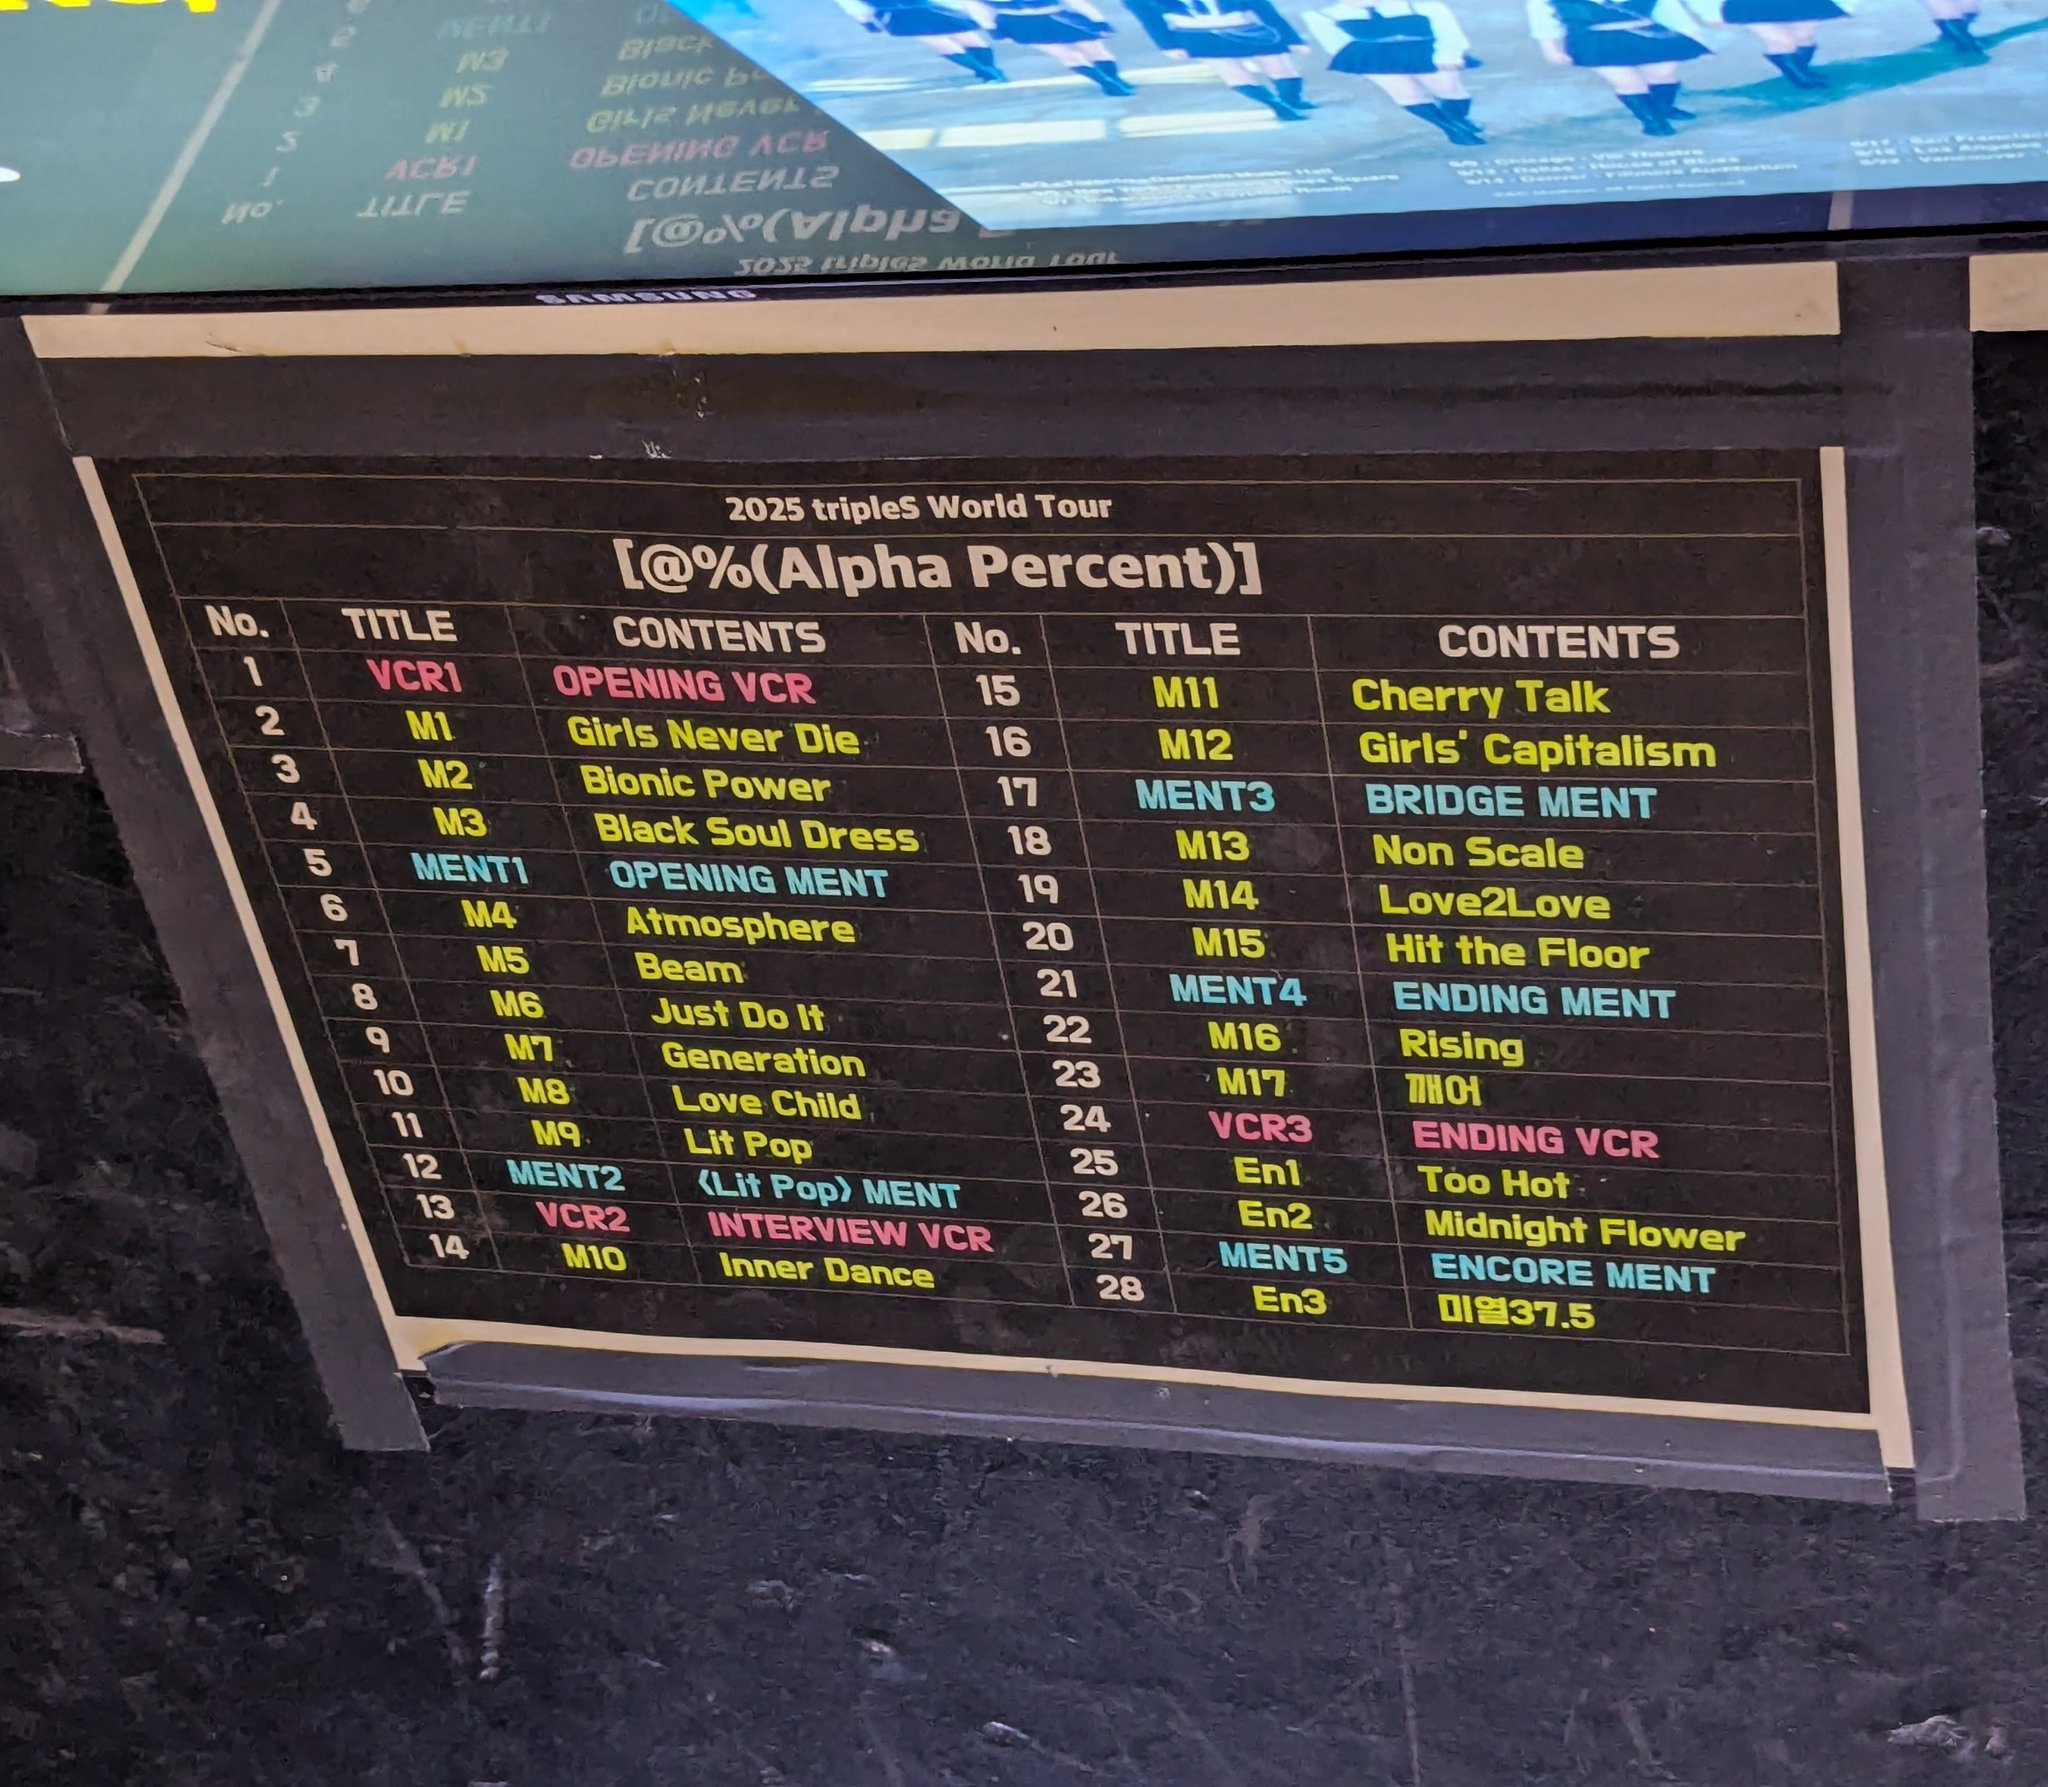 SAMSUNG
2025 tripleS World Tour
[@%(Alpha Percent)]
No. TITLE CONTENTS No. TITLE CONTENTS
1 VCR1 OPENING VCR 15 M11 Cherry Talk
2 M1 Girls Never Die 16 M12 Girls' Capitalism
3 M2 Bionic Power 17 MENT3 BRIDGE MENT
4 M3 Black Soul Dress 18 M13 Non Scale
5 MENT1 OPENING MENT 19 M14 Love2Love
6 M4 Atmosphere 20 M15 Hit the Floor
7 M5 Beam 21 MENT4 ENDING MENT
8 M6 Just Do It 22 M16 Rising
9 M7 Generation 23 M17 깨어
10 M8 Love Child 24 VCR3 ENDING VCR
11 M9 Lit Pop 25 En1 Too Hot
12 MENT2 〈Lit Pop〉 MENT 26 En2 Midnight Flower
13 VCR2 INTERVIEW VCR 27 MENT5 ENCORE MENT
14 M10 Inner Dance 28 En3 미열37.5